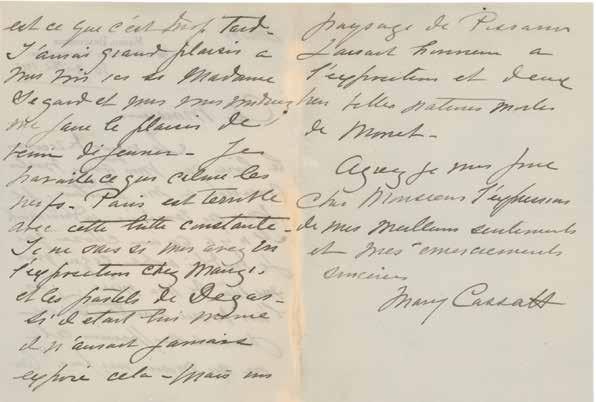 est ce que c'est trop tard.
J'aurais grand plaisir a
vous voir ici si Madame
Segard et vous vous vouliez
me faire le plaisir de
venir dejeuner. Je
travaille ce que calme les
nerfs. Paris est terrible
avec cette lutte constante.
Je ne sais si vous avez vu
l'exposition chez Manzi.
et les pastels de Degas.
Si il etait lui meme
il n'aurait jamais
exposé cela. Mais un
paysage de Pissarro
faisait honneur a
l'exposition et deux
tres belles natures mortes
de Monet.
Agreez je vous prie
cher Monsieur l'expression
de mes meilleurs sentiments
et mes remerciements
sinceres
Mary Cassatt